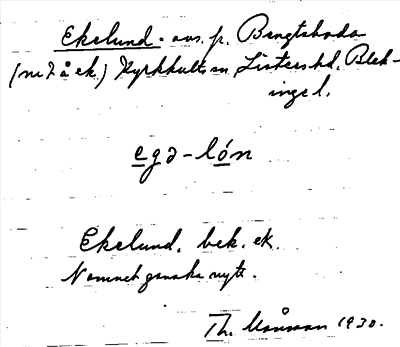 Ekelund. avs. p. Bengtsboda
(nr 7 å ek.) Kyrkhults sn Listers hd. Blek-
inge l.
egə-lón
Ekelund. bek. ek.
Namnet ganska nytt.
Th. Månsson 1930.